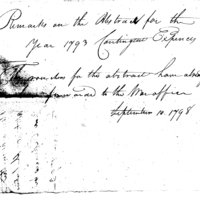 Remarks on the Abstract for the
Year 1793 Contingent Expences
The vouchers for this abstract have
forwarded to the War office
September 10. 1798